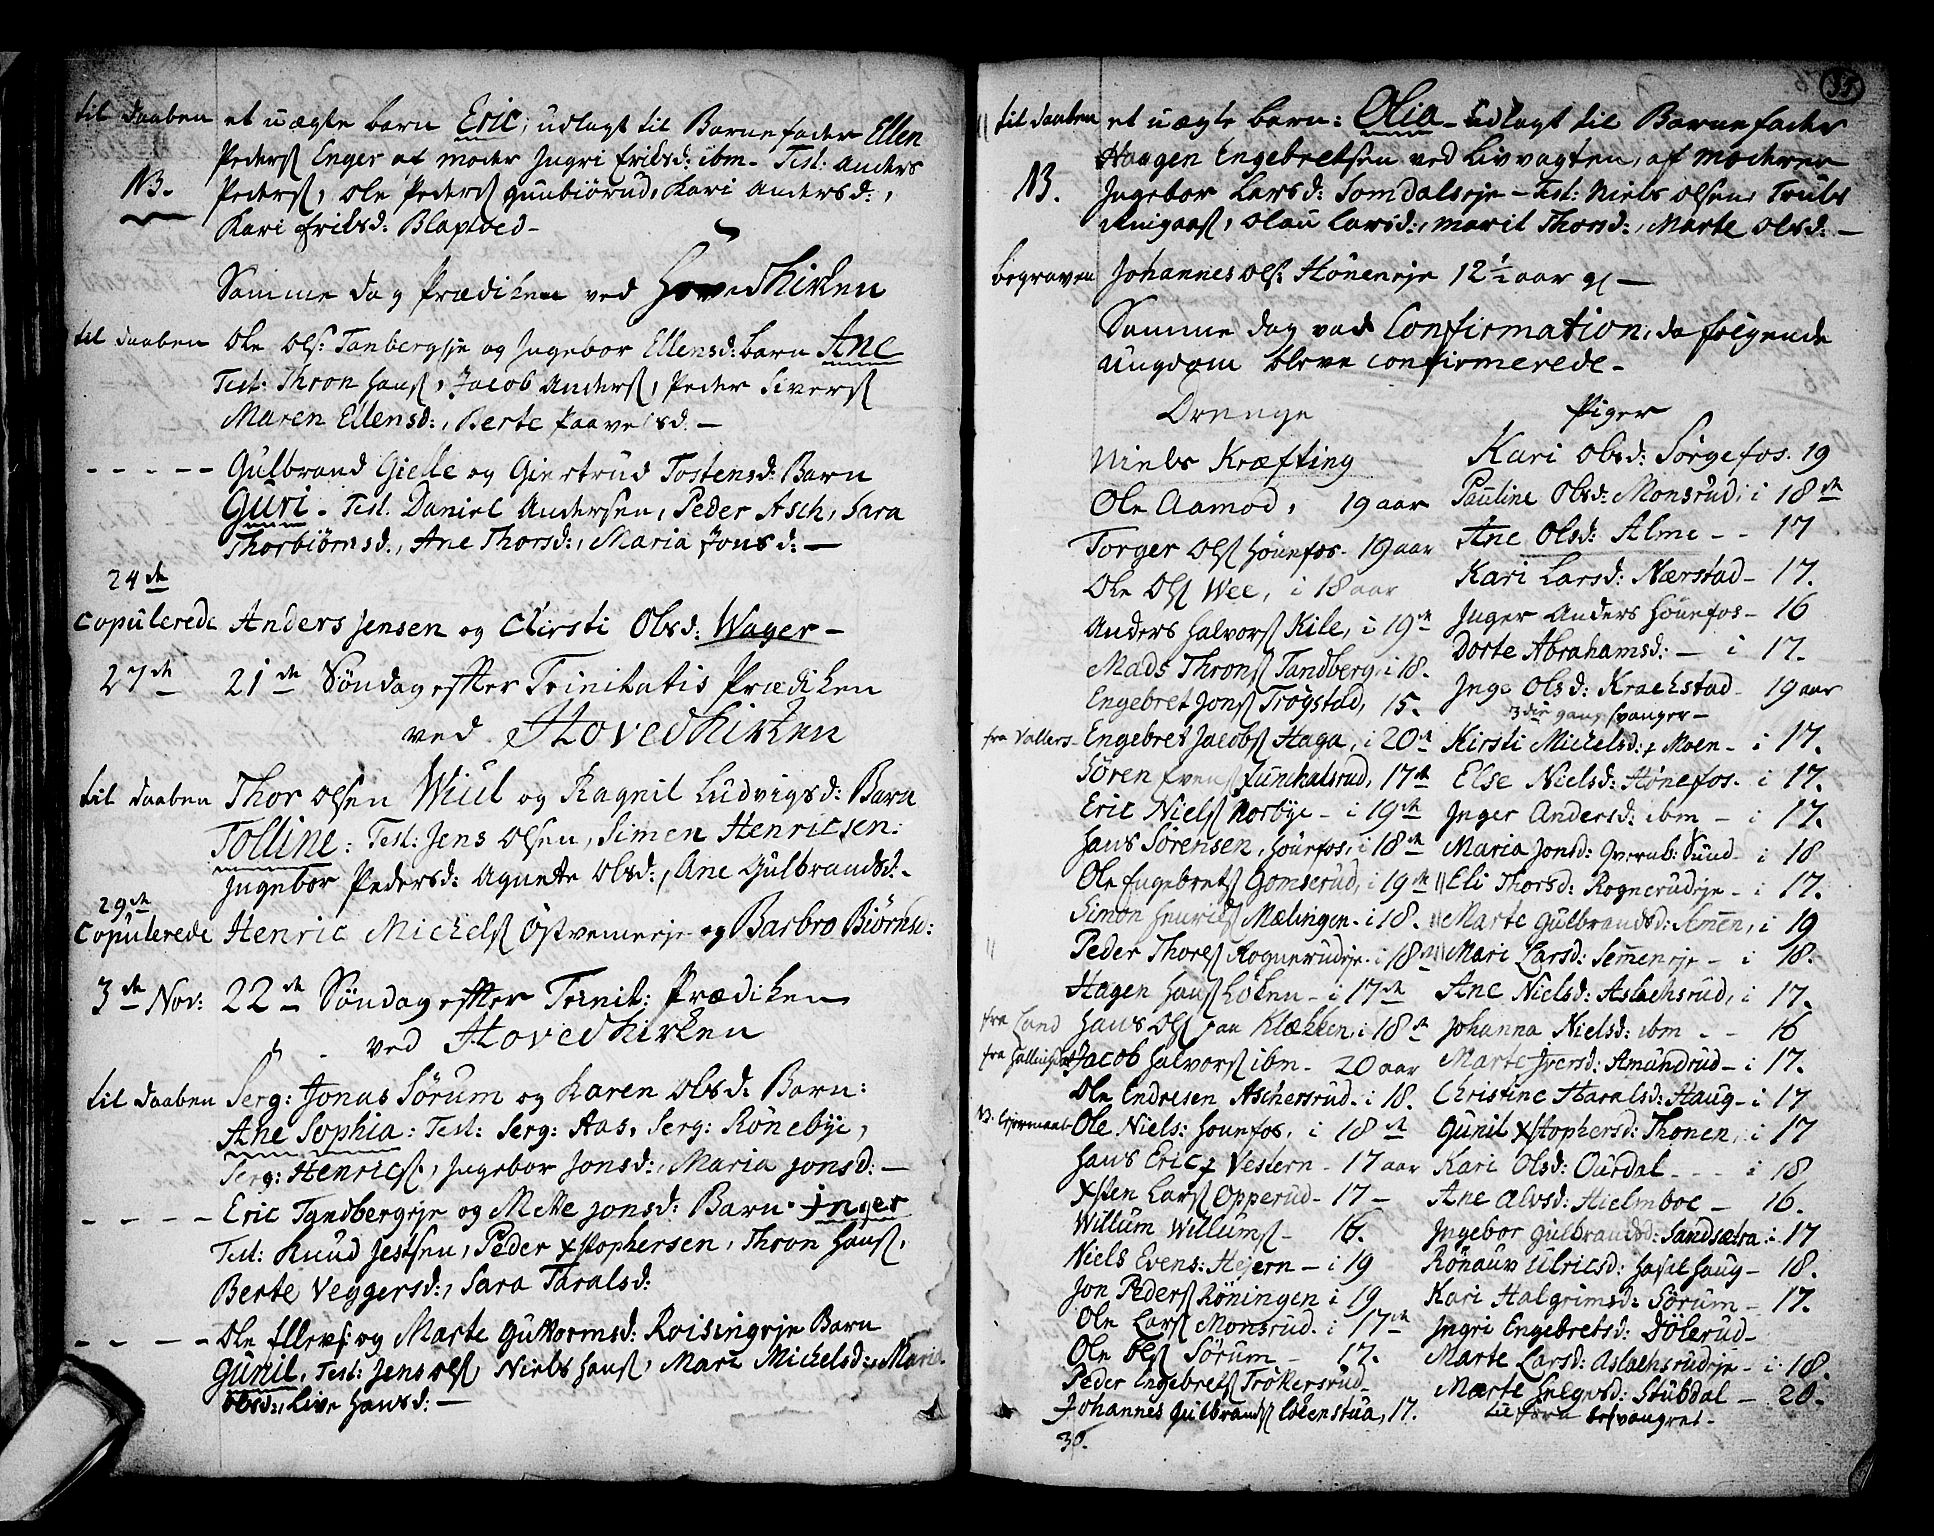 til daaben et uægte barn Eric, udlagt til Barnefader Ellen
Peders Enger af moder Ingri Eriksd: ibm - Test: Anders
NB. Peders, Ole Peders gunbiörud, Kari Andersd:,
Kari Eriksd:
Samme dag Prædiken ved Hovedkirken
til daaben Ole Ols: Tanbergeje og Ingebor Ellensd: barn Ane
Test: Thron Hans, Jacob Anders, Peder Sivers
Maren Ellensd:, Berte Paavelsd. -
- - - - - Gulbrand Gielle og Giertrud Tostensd: Barn
Guri - Test. Daniel Andersen, Peder Asch, Sara
Thorbiörnsd., Ane Thorsd:, Maria Jonsd: -
24de
Copulerede Anders Jensen og Chirsti Olsd: Wager -
27de 21de Söndag efter Trinitatis Prædiken
ved Hovedkirken
til daaben Thor Olsen Wiul og Ragnil Ludvigsd: Barn
Tolline: Test: Jens Olsen, Simen Henricsen:
Ingebor Pedersd: Agnete Olsd:, Ane Gulbrandsd. -
29de
Copulerede Henric Michels og Barbro Biörnsd:
3de Nov: 22de Söndag efter Trinit: Prædiken
ved Hovedkirken
til daaben Serg: Jonas Sörum og Karen Olsd: Barn:
Ane Sophia: Test: Serg: Aas, Serg: Rönebye,
Serg: Henrics, Ingebor Jonsd:, Maria Jonsd: -
- - - - Eric Tandbergeje og Mette Jonsd: Barn. Inger
Test: Knud Jensen, Peder Xstophersen, Thron Hans,
Berte Veggersd:, Sara Taralsd:
- - - - Ole Ellevs: og Marte Guttormsd: Roisingeje Barn
Gunil, Test: Jens Ols, Niels Hans, Mari Michelsd:, Maria
Olsd:, Live Hansd: -
35.
til daaben et uægte barn: Olia - udlagt til Barnefader
Haagen Engebretsen ved Livvagten, af moderen
NB. Ingebor Larsd: Somdalseje - Test: Niels Olsen, Truls
Olau Larsd:, Marit Thorsd:, Marte Olsd: -
begraven Johannes Ols: Höneneje 12 1/2 aar gl -
Samme dag var Confirmation, da følgende
ungdom bleve confirmerede -
Drenge
Niels Kræfting
Ole Aamod, 19 aar
Torger Ols Hönefos - 19 aar
Ole Ols Wee, i 18 aar
Anders Halvors Kile, i 19de
Mads Throns Tandberg, i 18.
Engebret Jons Trögstad, 15.
fra Vallers - Engebret Jacobs Haga, i 20de
Sören Evens Lunhalsrud, 17de
Eric Niels Norbye - i 19de
Hans Sörensen, Hönefos, i 18de
Ole Engebrets Gomserud, i 19de
Simon Henrics Mælingen - i 18.
Peder Thores Rognerudeje - i 18de
Hagen Hans Löken - i 17de
fra Land Hans Ols paa Klækken, i 18de
Jacob Halvors ibm - 20 aar
Ole Endresen Aschersrud - i 18.
Ole Niels: Hönefos, i 18de
Hans Eric Vestern - 17 aar
Xsten Lars Opperud - 17 -
Willum Willums - 16.
Niels Evens: Hejern - i 19
Jon Peders Röningen i 19
Ole Lars Monsrud - i 17de
Ole Ols Sörum - 17.
Peder Engebrets Trökersrud -
Johannes Gulbrands Löenstua, 17.
30.
Piger
Kari Olsd: Sörgefos. 19
Pauline Olsd: Monsrud, i 18de
Ane Olsd: Alme - - 17
Kari Larsd: Nærstad - 17.
Inger Anders Hönefos - 16
Dorte Abrahamsd: - i 17.
Inge Olsd: Krachstad - 19 aar
3die gang svanger -
Kirsti Michelsd:, Moen - i 17.
Else Nielsd: Hönefos - i 17.
Inger Andersd: ibm - i 17.
Maria Jonsd: Qvernb: Sund - i 18
Eli Thorsd: Rognerudeje - i 17.
Marte Gulbrandsd: Semen, i 19
Mari Larsd: Semeneje - i 18.
Ane Nielsd: Aslachsrud, i 17.
Johanna Nielsd: ibm - - 16
Marte Iversd: Amundrud - i 17.
Christine Haralsd: Haug - i 17
Gunil Xstophersd: Thonen, i 17
Kari Olsd: Ourdal - - - i 18
Ane Alvsd: Hielmboe - 16.
Ingebor Gulbrandsd: Sandsætra i 17
Rönauv Ulricsd: Haselhaug - 18.
Kari Halgrimsd: Sörum - 17.
Ingri Engebretsd: Dölerud -
Marte Larsd: Aslachsrudeje - i 18.
Marte Helgesd: Stubdal - 20.
besvangret -